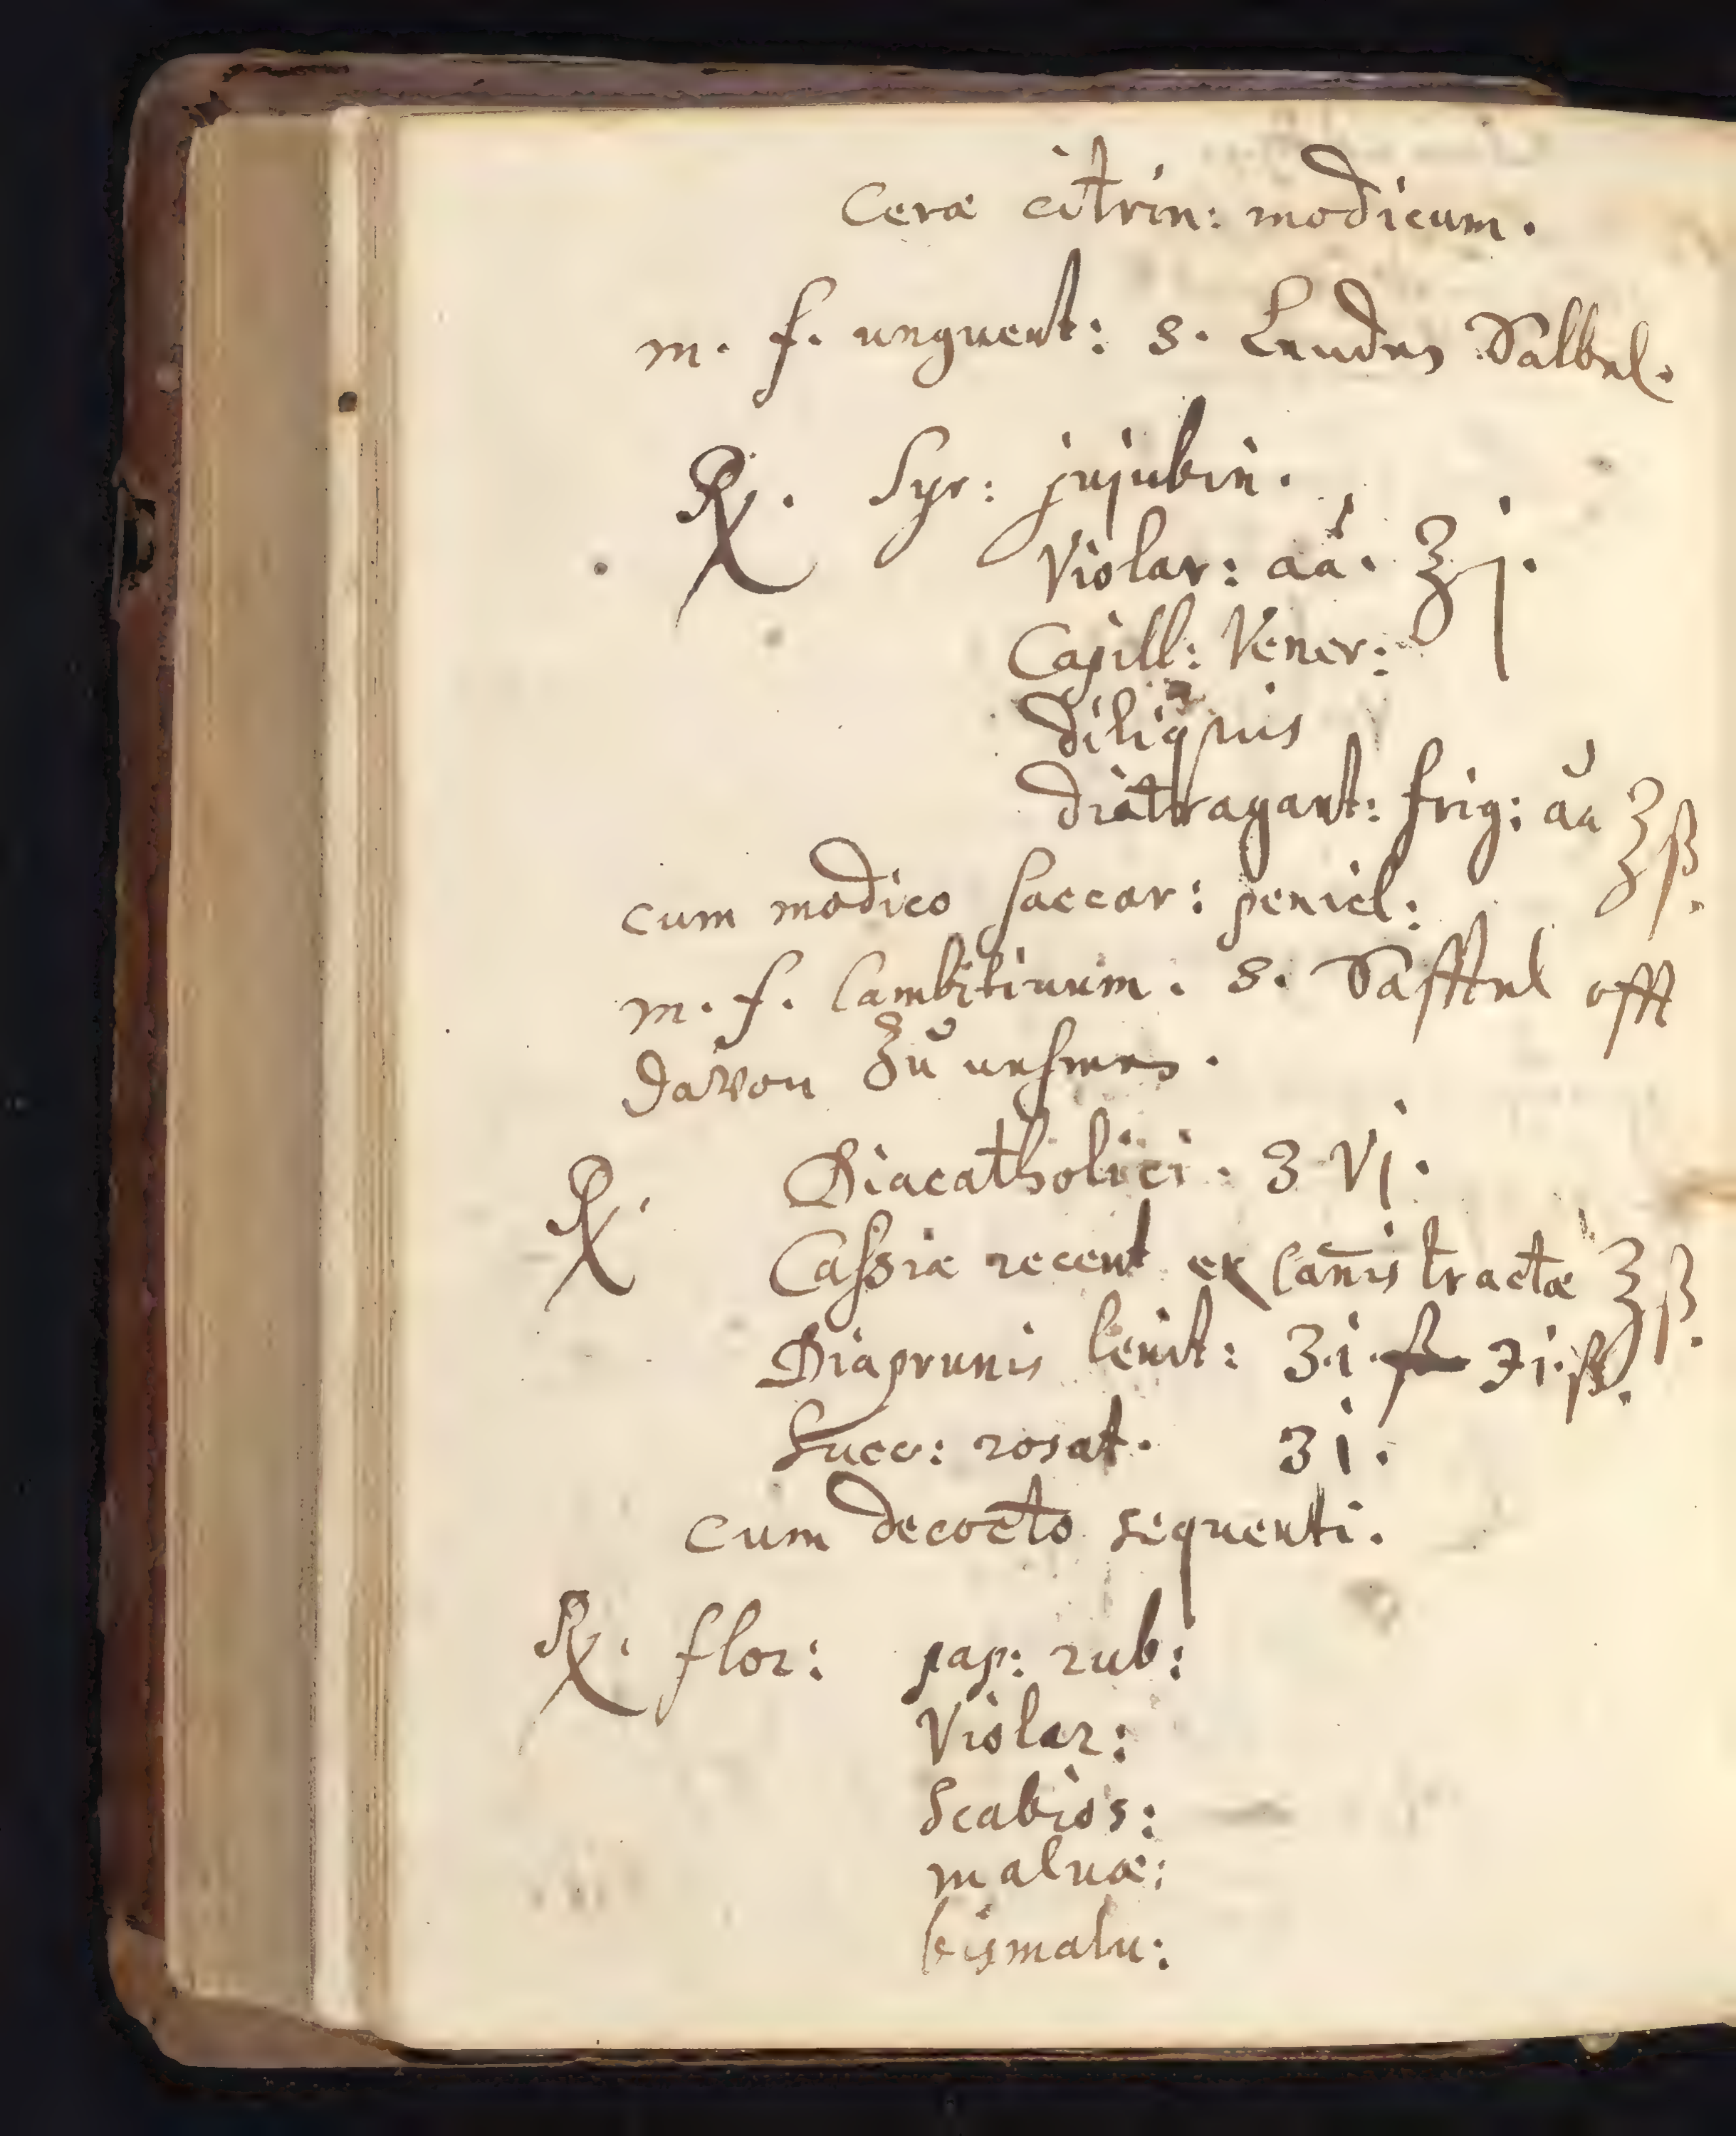 Ceræ citrin: modicum.
m. f. unguent: S. Lenden Sälbel.
℞. Syr: jujubin.
Violar: aa. ℥j.
Capill: Vener:
diliquis
diatragant: frig: aa ℥ß.
cum modico saccar: peniel:
m. f. lambitiuum. S. Säfftel offt
davon zu nehmen.
℞. Diacatholici: ʒ vj.
Cassiæ recent ex can̄is tractæ ℥ß.
Diaprunis lenit: ʒ.i. ß ʒi.ß.
Succ: rosat. ʒi.
cum decocto sequenti.
℞. flor: pap: rub:
Violar:
Scabios:
maluæ:
bismalu: